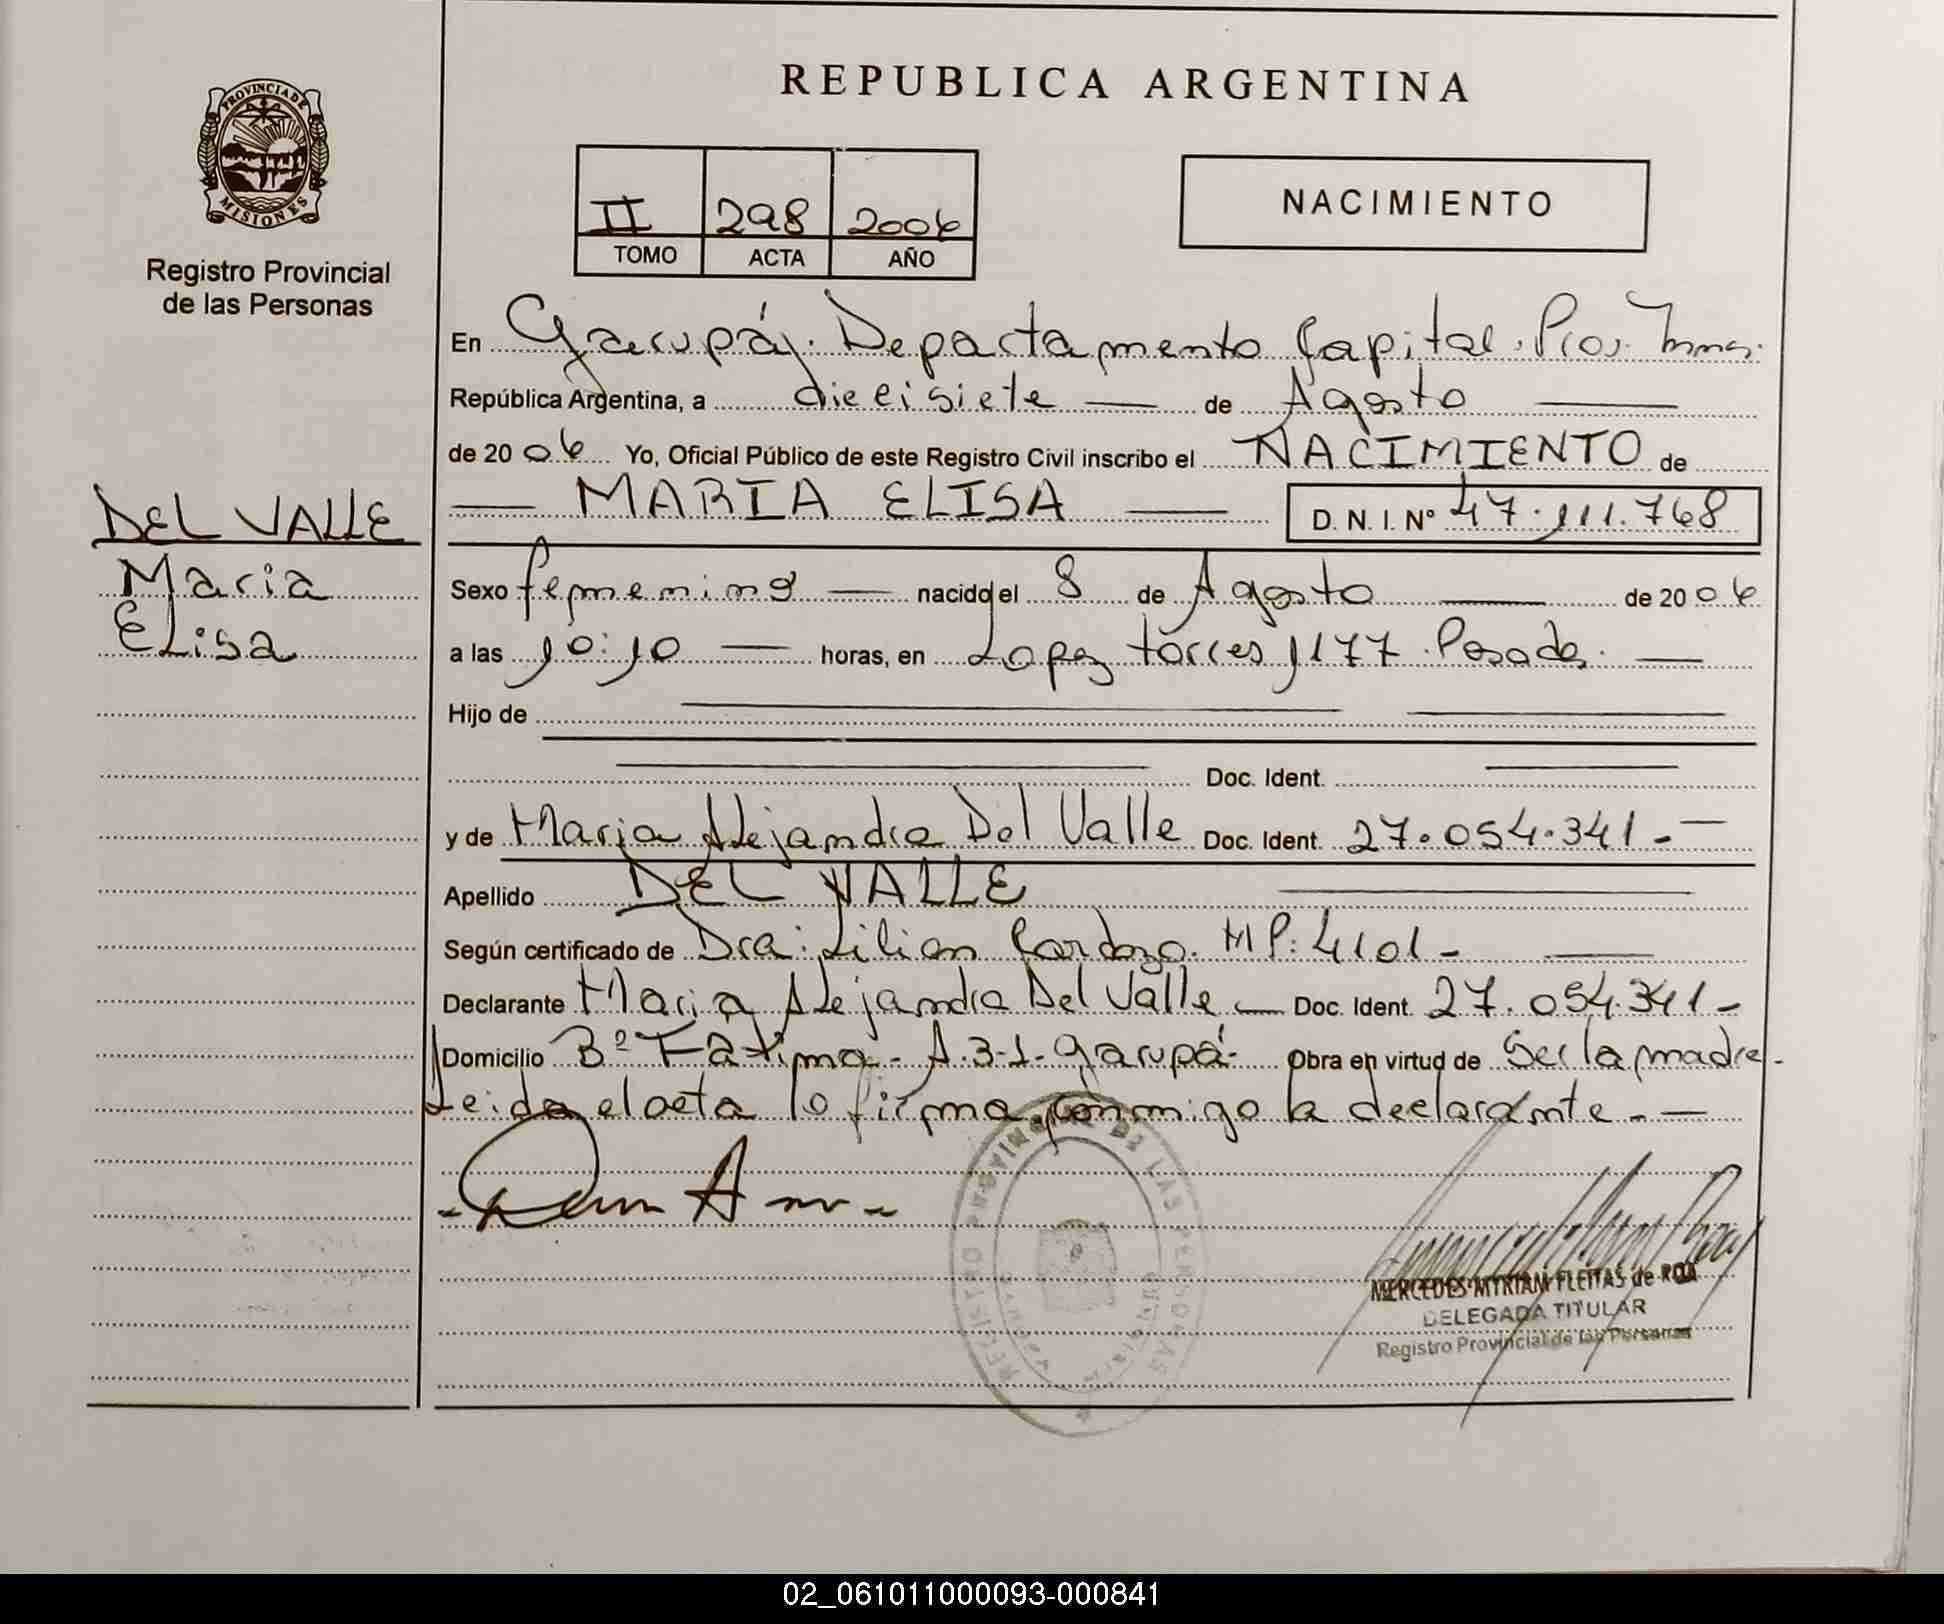 REPUBLICA ARGENTINA
PROVINCIA DE
MISIONES
Registro Provincial
de las Personas
II 298 2006
TOMO ACTA AÑO
NACIMIENTO
En Garupá, Departamento Capital, Prov.
República Argentina, a diecisiete de Agosto
de 2006 Yo, Oficial Público de este Registro Civil inscribo el NACIMIENTO de
MARIA ELISA D. N. I. Nº 47.111.768
DEL VALLE
Maria
Elisa
Sexo femenino nacido el 8 de Agosto de 2006
a las 10:10 horas, en Lopez torres 1177 Posadas.
Hijo de
Doc. Ident.
y de Maria Alejandra Del Valle Doc. Ident. 27.054.341.-
Apellido DEL VALLE
Según certificado de Dra: Lilian Cardozo. MP: 4101-
Declarante Maria Alejandra Del Valle Doc. Ident. 27.054.341-
Domicilio Bº Fátima - A-3-1- Garupá- Obra en virtud de Ser la madre-
Leida el acta lo firma conmigo la declarante.-
REGISTRO PROVINCIAL DE LAS PERSONAS
MERCEDES MYRIAM FLEITAS de ROA
DELEGADA TITULAR
Registro Provincial de las Personas
02_061011000093-000841